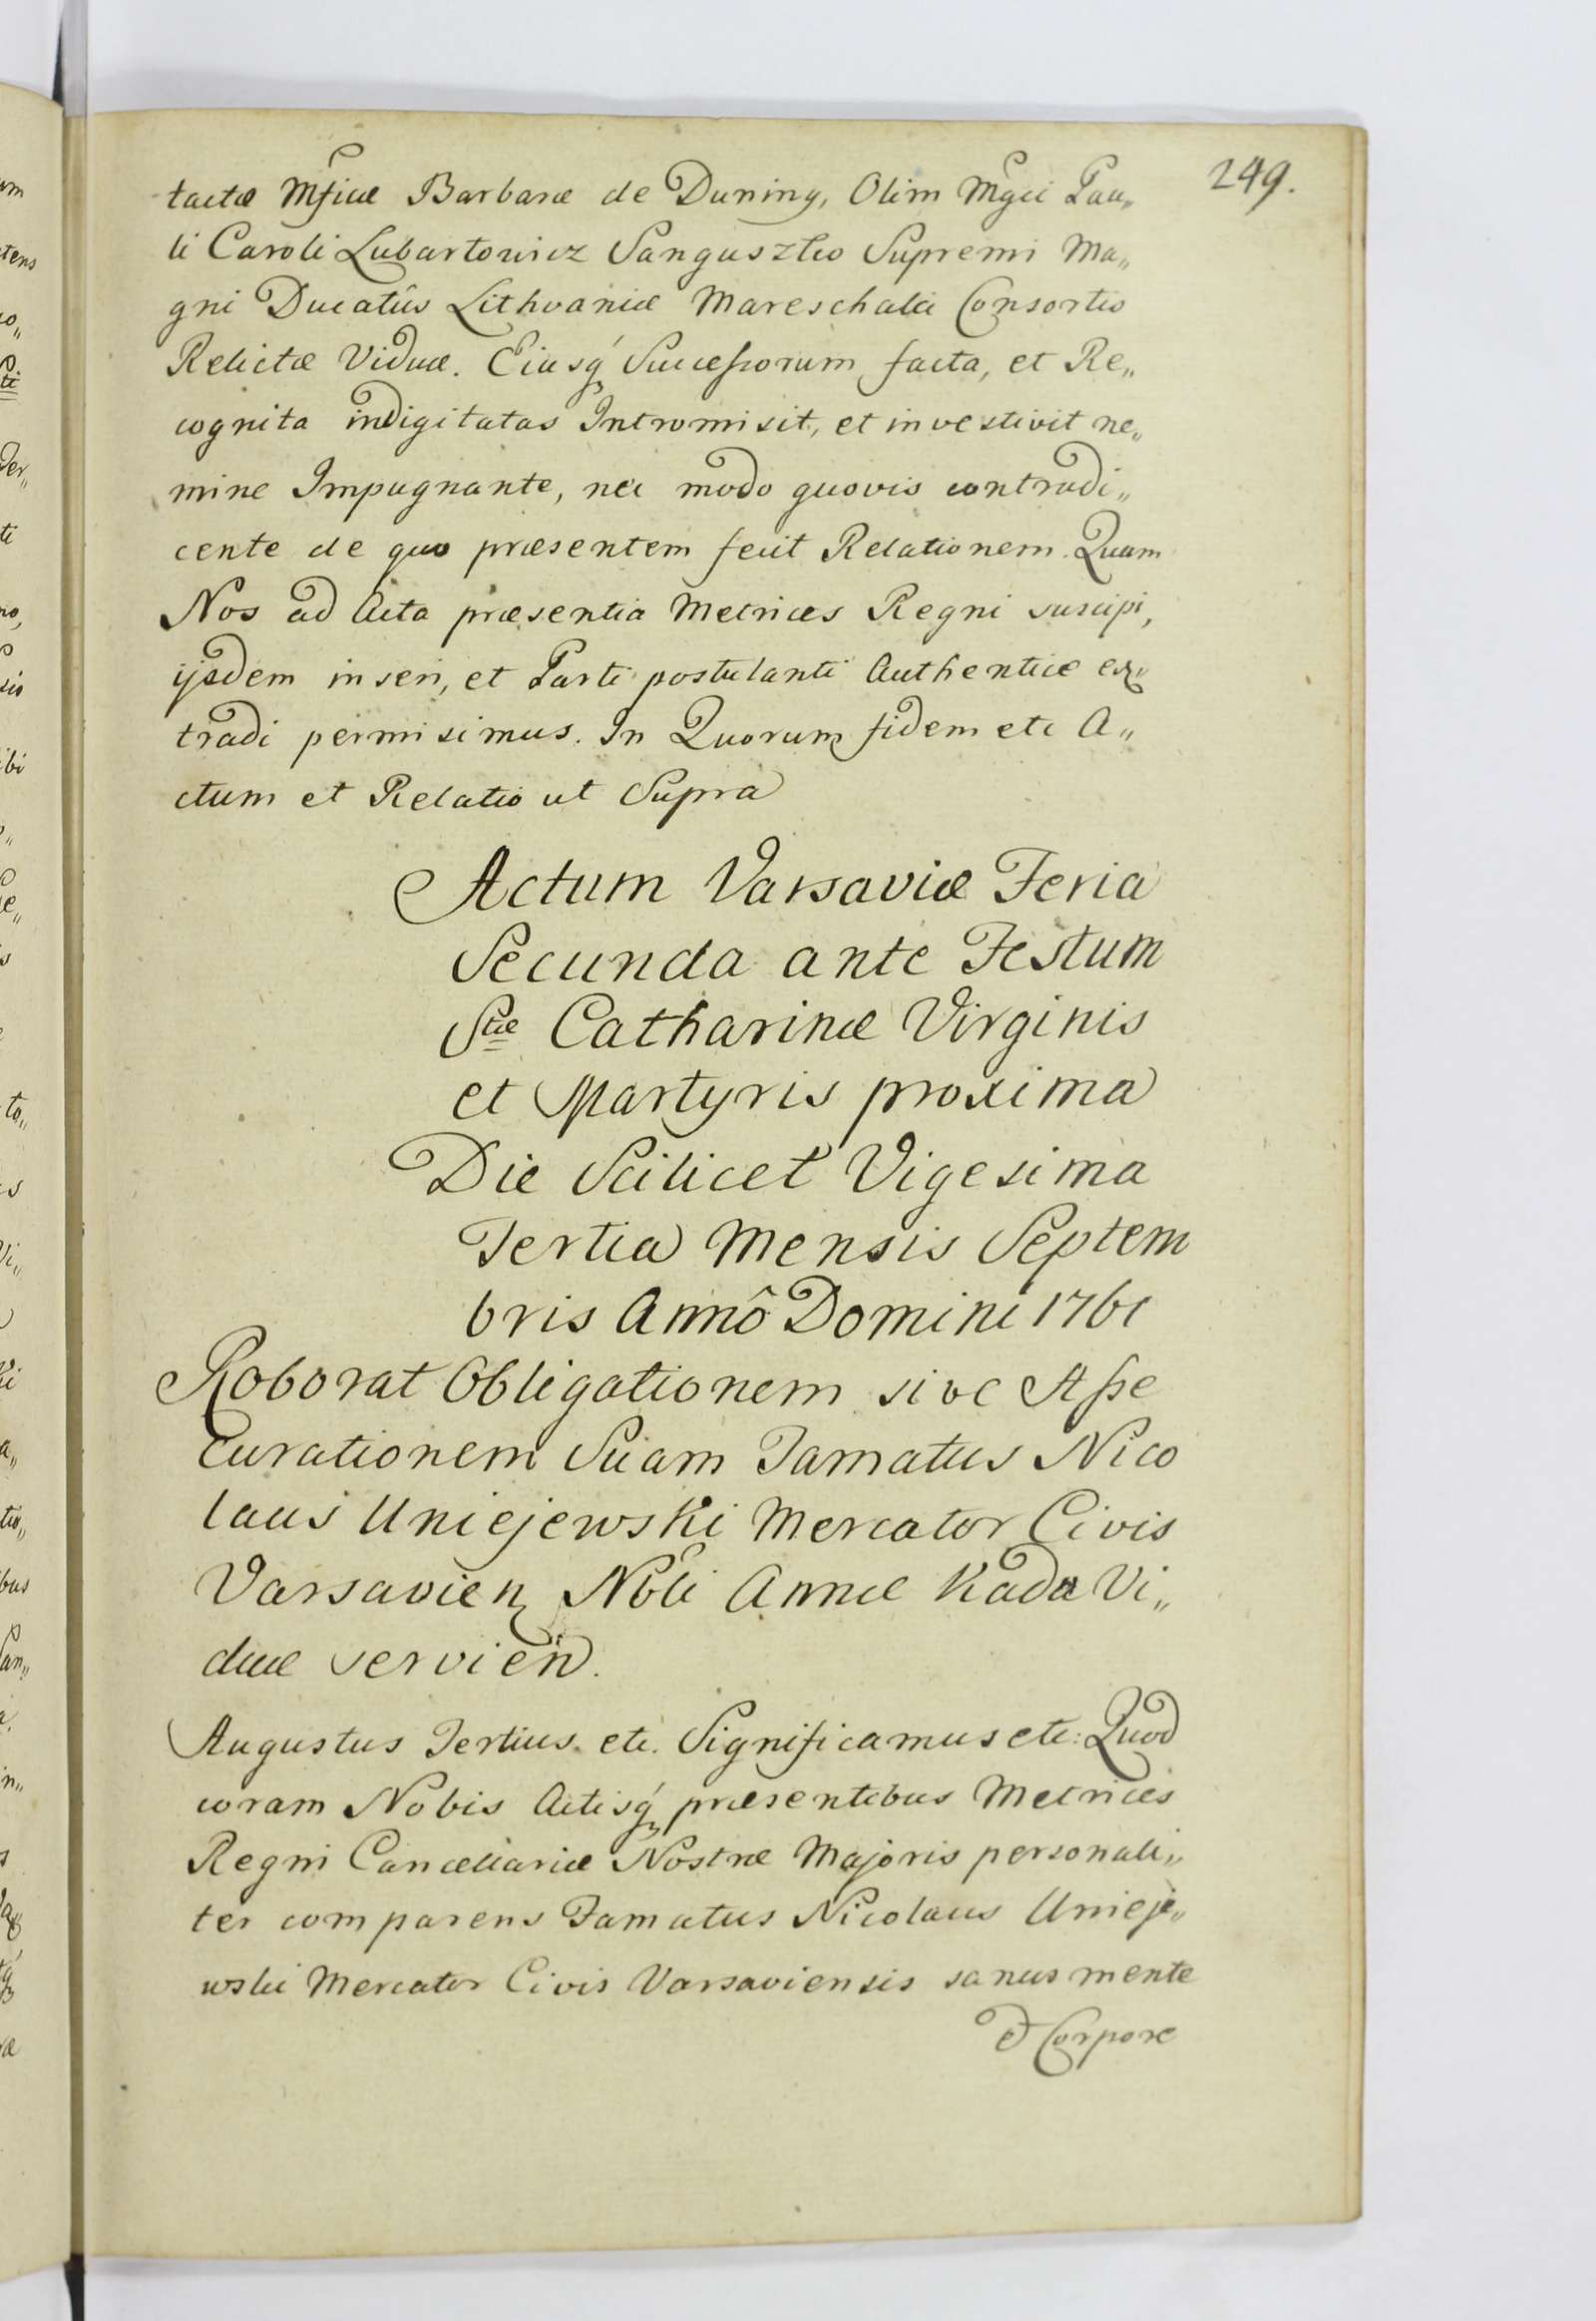 249.
tactæ Mficæ Barbaræ de Duning, Olim Mgci Pau„
li Caroli Lubartowicz Sanguszko Supremi Ma„
gni Ducatûs Lithvaniæ Mareschalci Consortis
Relictæ Viduæ. Eiusq́ Successorum facta, et Re„
cognita indigitatas Intromisit, et investivit ne„
mine Impugnante, nec modo quovis contradi„
cente de quo præsentem fecit Relationem. Quam
Nos ad Acta præsentia Metrices Regni suscipi,
ijsdem inseri, et Parti postulanti Authenticè ex„
tradi permisimus. In Quorum fidem etc A„
ctum et Relatio ut Supra
Actum Varsaviæ Feria
Secunda ante Festum
Stæ Catharinæ Virginis
et Martyris proxima
Die Scilicet Vigesima
Tertia Mensis Septem
bris Annô Domini 1761
Roborat Obligationem sive Asse
curationem Suam Famatus Nico
laus Uniejewski Mercator Civis
Varsavien Nobli Annæ Kada Vi„
duæ servien.
Augustus Tertius etc. Significamus etc: Quod
coram Nobis Actisq́ præsentibus Metrices
Regni Cancellariæ Nostræ Majoris personali„
ter comparens Famatus Nicolaus Unieje„
wski Mercator Civis Varsaviensis sanus mente
et Corpore